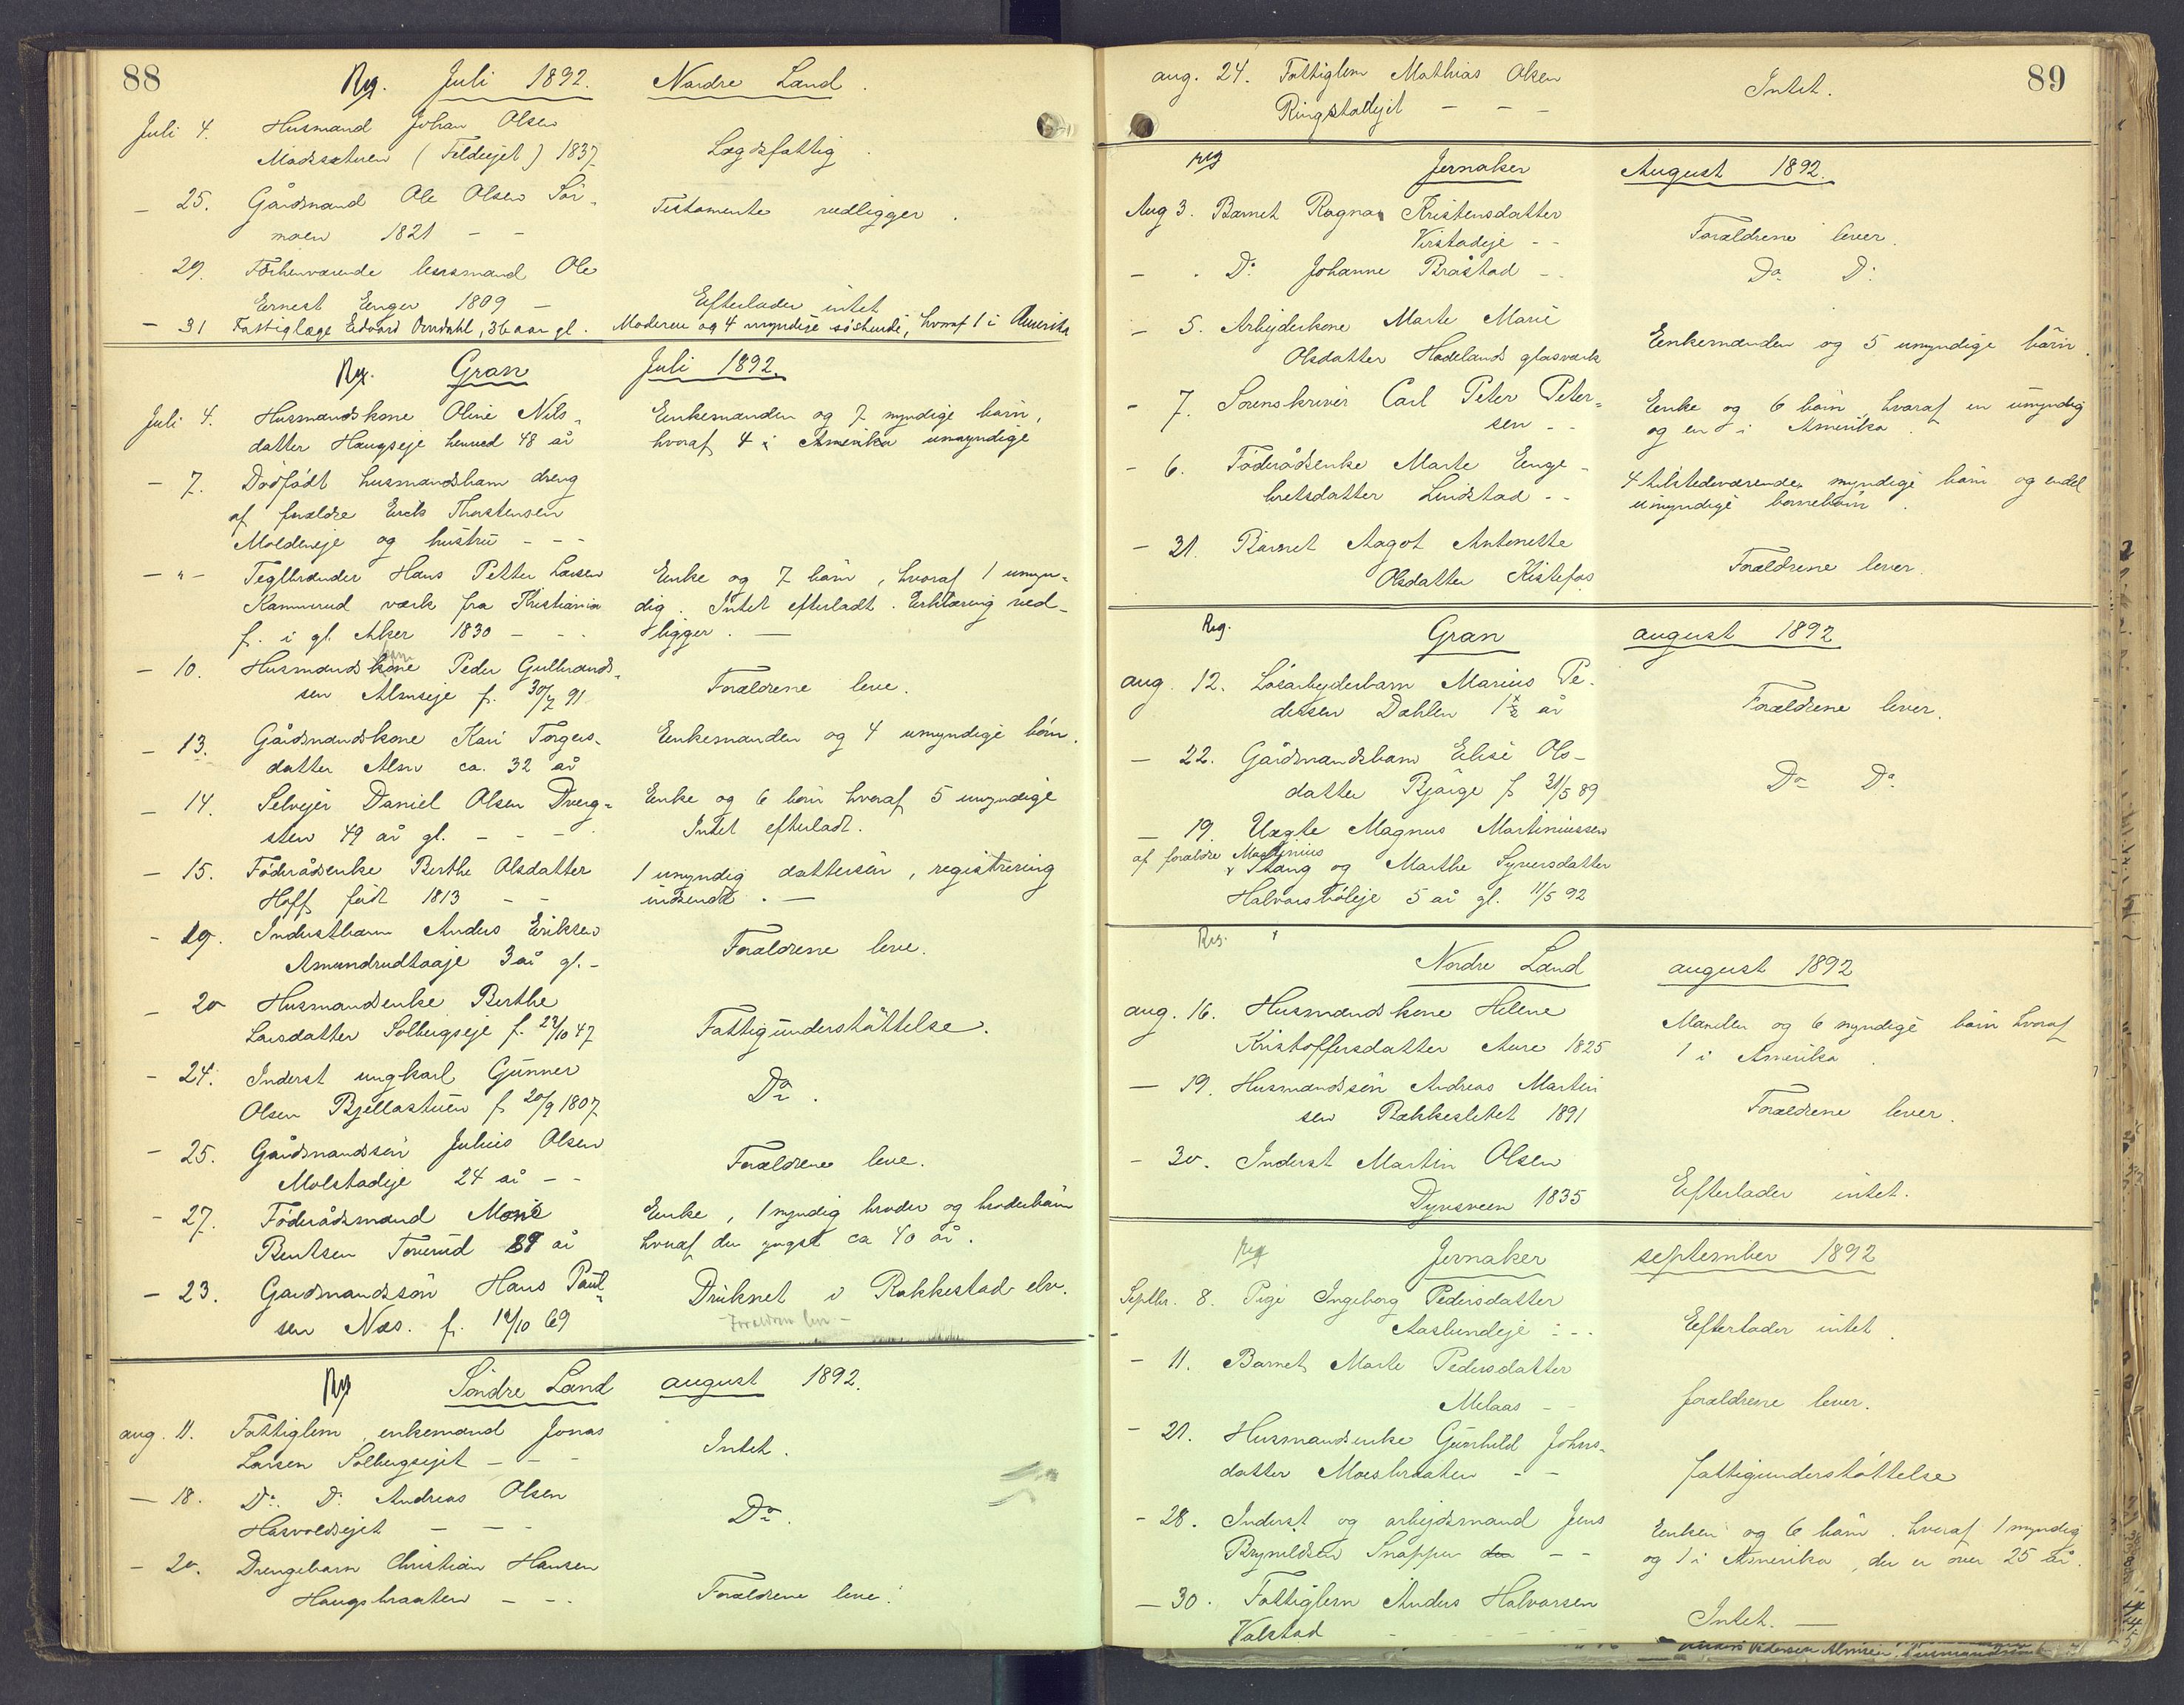 88
Reg. Juli 1892. Nordre Land.
Juli 4. Husmand Johan Olsen
Madssæteren (Feldeejet) 1837 Lægdsfattig.
— 25. Gårdmand Ole Olsen Sør-
moen 1821 — — Testamente vedligger.
29. Forhenværende lensmand Ole
Ernest Enger 1809 — Efterlader intet
— 31 Fattiglæge Edvard Omdahl, 36 aar gl. Moderen og 4 umyndige søskende, hvoraf 1 i Amerika
Reg. Gran Juli 1892.
Juli 4. Husmandskone Oline Nils- Enkemanden og 7 myndige børn,
datter Haugseje henved 48 år hvoraf 4 i Amerika umyndige
— 7. Dødfødt husmandsbarn dreng
af forældre Erik Thorstensen
Moldeneje og hustru — — —
— " — Teglbrænder Hans Petter Larsen Enke og 7 børn, hvoraf 1 umyn-
værk fra Kristiania dig. Intet efterladt. Erklæring ved-
f. i gl. Aker 1830 — — — ligger. —
— 10. Husmandskone barn Peder Gulbrands-
sen Almseje f. 30/7 91 Forældrene leve.
— 13. Gårdmandskone Kari Torgers- Enkemanden og 4 umyndige børn.
datter Alm ca. 32 år
— 14. Selvejer Daniel Olsen Dverg- Enke og 6 børn hvoraf 5 umyndige
sten 49 år gl. — — — Intet efterladt.
— 15. Føderådsenke Berthe Olsdatter 1 umyndig dattersøn, registrering
Hoff født 1813 — — indsendt. —
— 19. Inderstbarn Anders Eriksen
3 år gl. — Forældrene leve.
— 20 Husmandsenke Berthe
Larsdatter Solbergseje f. 22/10 47 Fattigunderstøttelse.
— 24. Inderst ungkarl Gunner
Olsen Bjellastuen f 20/9 1807 Do.
— 25. Gårdmandssøn Julius Olsen
Molstadeje 24 år — — Forældrene leve.
— 27. Føderådsmand Mons Enke, 1 myndig broder og broderbørn
Bentsen Toverud 89 år hvoraf den yngst ca 40 år.
— 23. Gardmandssøn Hans Paul- Druknet i Rakkestad elv.
sen Næs. f. 19/10 69 Forældrene leve —
Reg Søndre Land august 1892.
aug. 11. Fattiglem, enkemand Jonas
Larsen Solbergsejet — — — Intet.
— 18. Do. Do. Andreas Olsen
Hasvoldsejet — — — Do.
— 20. Drengebarn Christian Hansen
Haugsbraaten — — — Forældrene leve.
89
aug. 24. Fattiglem Mathias Olsen
Ringstadejet — — — Intet.
reg Jevnaker August 1892.
Aug 3. Barnet Ragna Kristensdatter
Virstadeje — — Forældrene lever.
— . Do. Johanne Bråstad — . Do Do
— 5. Arbejderkone Marte Marie
Olsdatter Hadelands glasværk Enkemanden og 5 umyndige børn.
— 7. Sorenskriver Carl Peter Peter- Enke og 6 børn, hvoraf en umyndig
sen — — og en i Amerika.
— 6. Føderådsenke Marte Enge- 4 tilstedeværende myndige børn og endel
bretsdatter Lindstad — — umyndige børnebørn.
— 31. Barnet Aagot Antonette
Olsdatter Kistefos Forældrene lever.
Reg. Gran august 1892
aug. 12. Løsarbejderbarn Marius Pe-
dersen Dahlen 1 1/2 år Forældrene lever.
— 22. Gårdmandsbarn Elise Ols-
datter Bjørge f 31/5 89 Do Do
— 19. Uægte Magnus Martiniussen
af forældre Martinius
Stang og Marthe Syversdatter
5 år gl. 11/5 92
Reg.
Nordre Land august 1892
aug. 16. Husmandskone Helene Manden og 6 myndige børn hvoraf
Kristoffersdatter Aure 1825 1 i Amerika.
— 19. Husmandssøn Andreas Martin
sen Bakkesletet 1891 Forældrene lever.
— 30. Inderst Martin Olsen
Dynsveen 1835 Efterlader intet.
reg Jevnaker september 1892
Septbr. 8. Pige Ingeborg Pedersdatter
Aaslundeje — — Efterlader intet.
— 11. Barnet Marte Pedersdatter
Melaas — — forældrene lever.
— 21. Husmandsenke Gunhild Johns-
datter Moesbraaten — — fattigunderstøttelse
— 28. Inderst og arbejdsmand Jens Enken og 6 børn, hvoraf 1 myndig
Brynildsen Snappen — — og 1 i Amerika, der er over 25 år.
— 30. Fattiglem Anders Halvorsen
Valstad — Intet. —